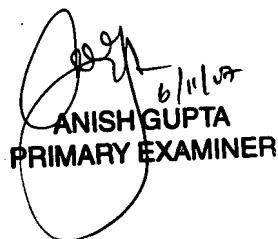 6/11/07
ANISH GUPTA
PRIMARY EXAMINER